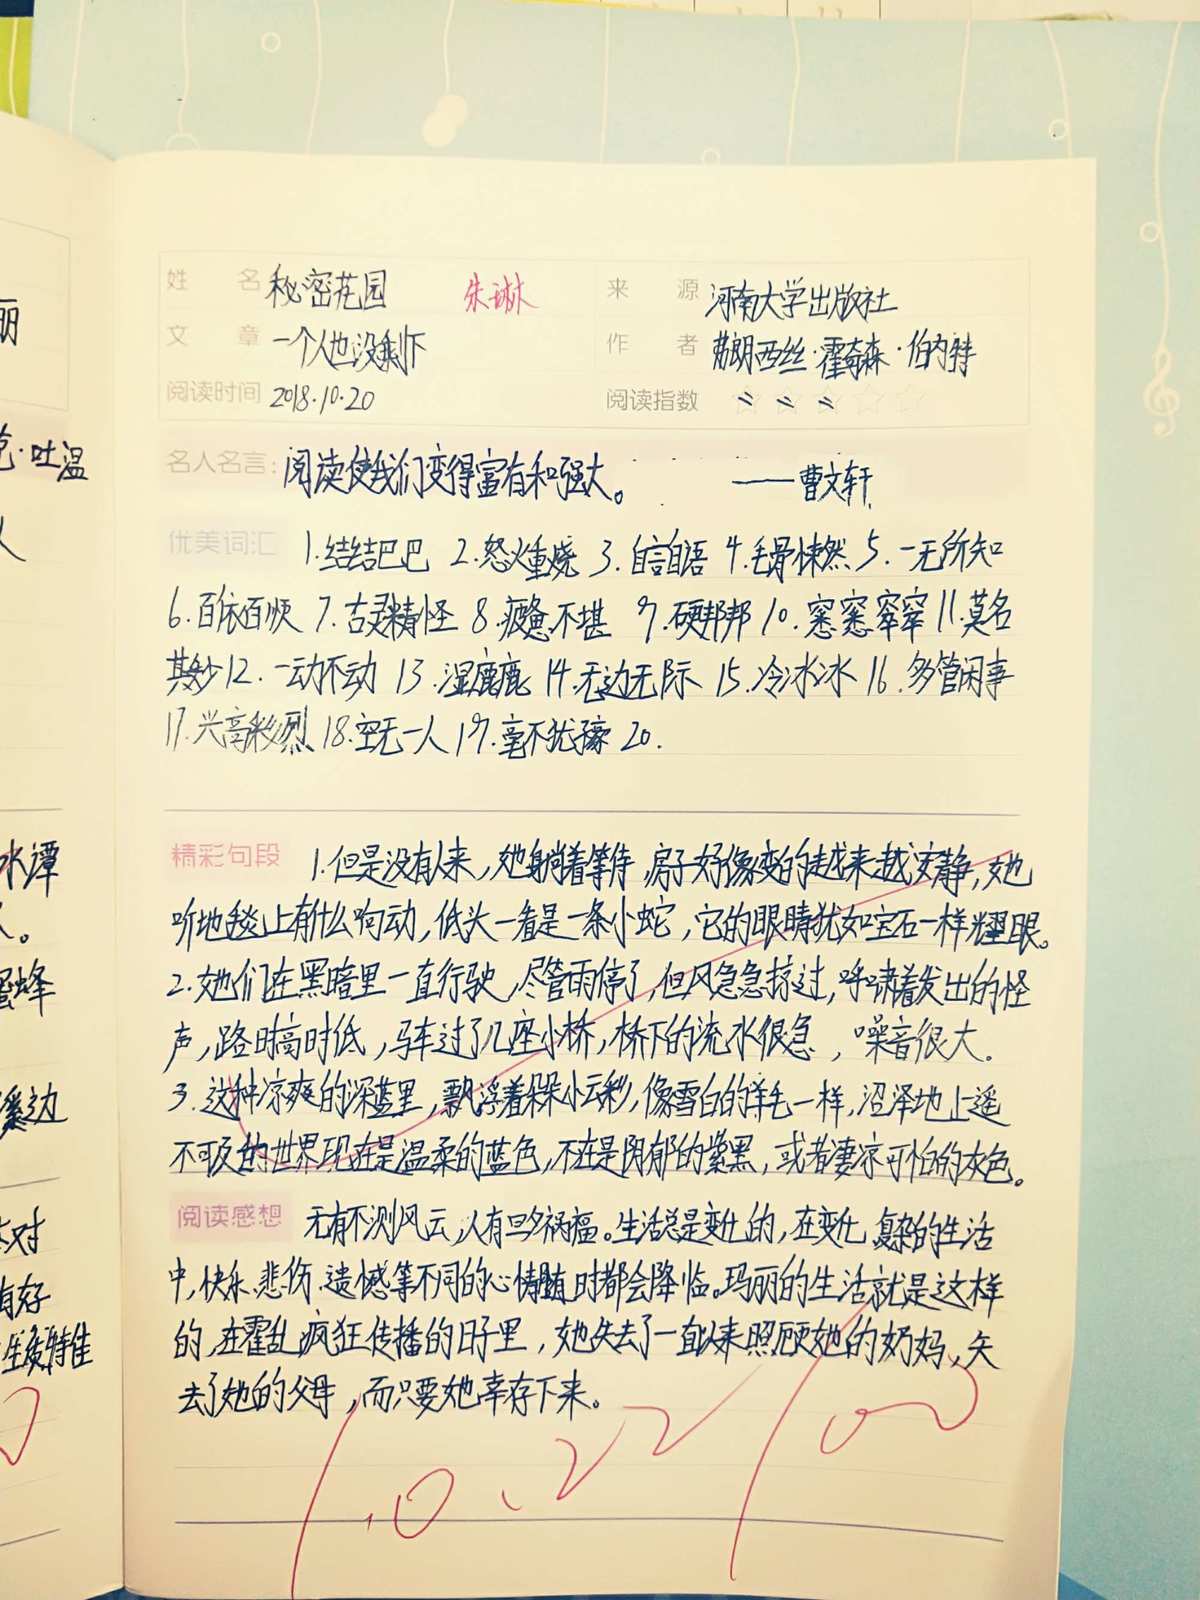 丽
克·吐温
人
水谭
蜜蜂
溪边
对
有好
姓 名 秘密花园 朱琳 来 源 河南大学出版社
文 章 一个人也没剩下 作 者 弗朗西丝·霍奇森·伯内特
阅读时间 2018.10.20 阅读指数
名人名言: 阅读使我们变得富有和强大。 ——曹文轩
优美词汇 1.结结巴巴 2.怒火重烧 3.自言自语 4.毛骨悚然 5.一无所知
6.百依百顺 7.古灵精怪 8.疲惫不堪 9.硬邦邦 10.窸窸窣窣 11.莫名
其妙 12.一动不动 13.湿鹿鹿 14.无边无际 15.冷冰冰 16.多管闲事
17.兴高彩烈 18.空无一人 19.毫不犹豫 20.
精彩句段 1.但是没有人来,她躺着等待,房子好像变的越来越安静,她
听地毯上有什么响动,低头一看是一条小蛇,它的眼睛犹如宝石一样耀眼。
2.她们在黑暗里一直行驶,尽管雨停了,但风急急掠过,呼啸着发出的怪
声,路时高时低,马车过了几座小桥,桥下的流水很急,噪音很大.
3.这种凉爽的深蓝里,飘浮着朵朵小云彩,像雪白的羊毛一样,沼泽地上遥
不可及的世界现在是温柔的蓝色,不在是阴郁的紫黑,或者凄凉可怕的灰色。
阅读感想 无有不测风云,人有旦夕祸福。生活总是变化的,在变化、复杂的生活
中,快乐、悲伤、遗憾等不同的心情随时都会降临。玛丽的生活就是这样
的,在霍乱疯狂传播的日子里,她失去了一直以来照顾她的奶妈,失
去了她的父母,而只要她幸存下来。
10.22